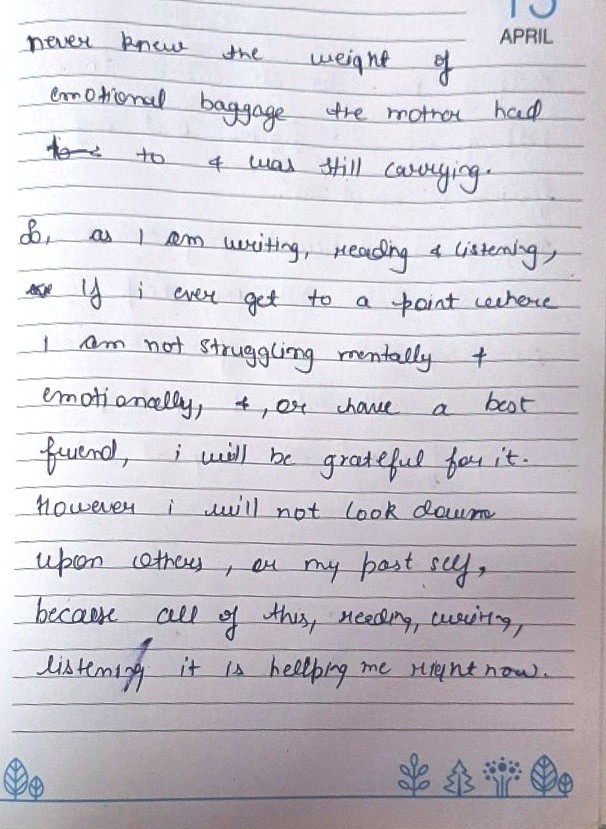 APRIL
never knew the weight of
emotional baggage the mother had
to & was still carrying.
So, as I am writing, reading & listening,
If i ever get to a point where
I am not struggling mentally &
emotionally, &, or have a best
friend, i will be grateful for it.
However i will not look down
upon others, or my past self,
because all of this, reading, writing,
listening it is hellping me right now.